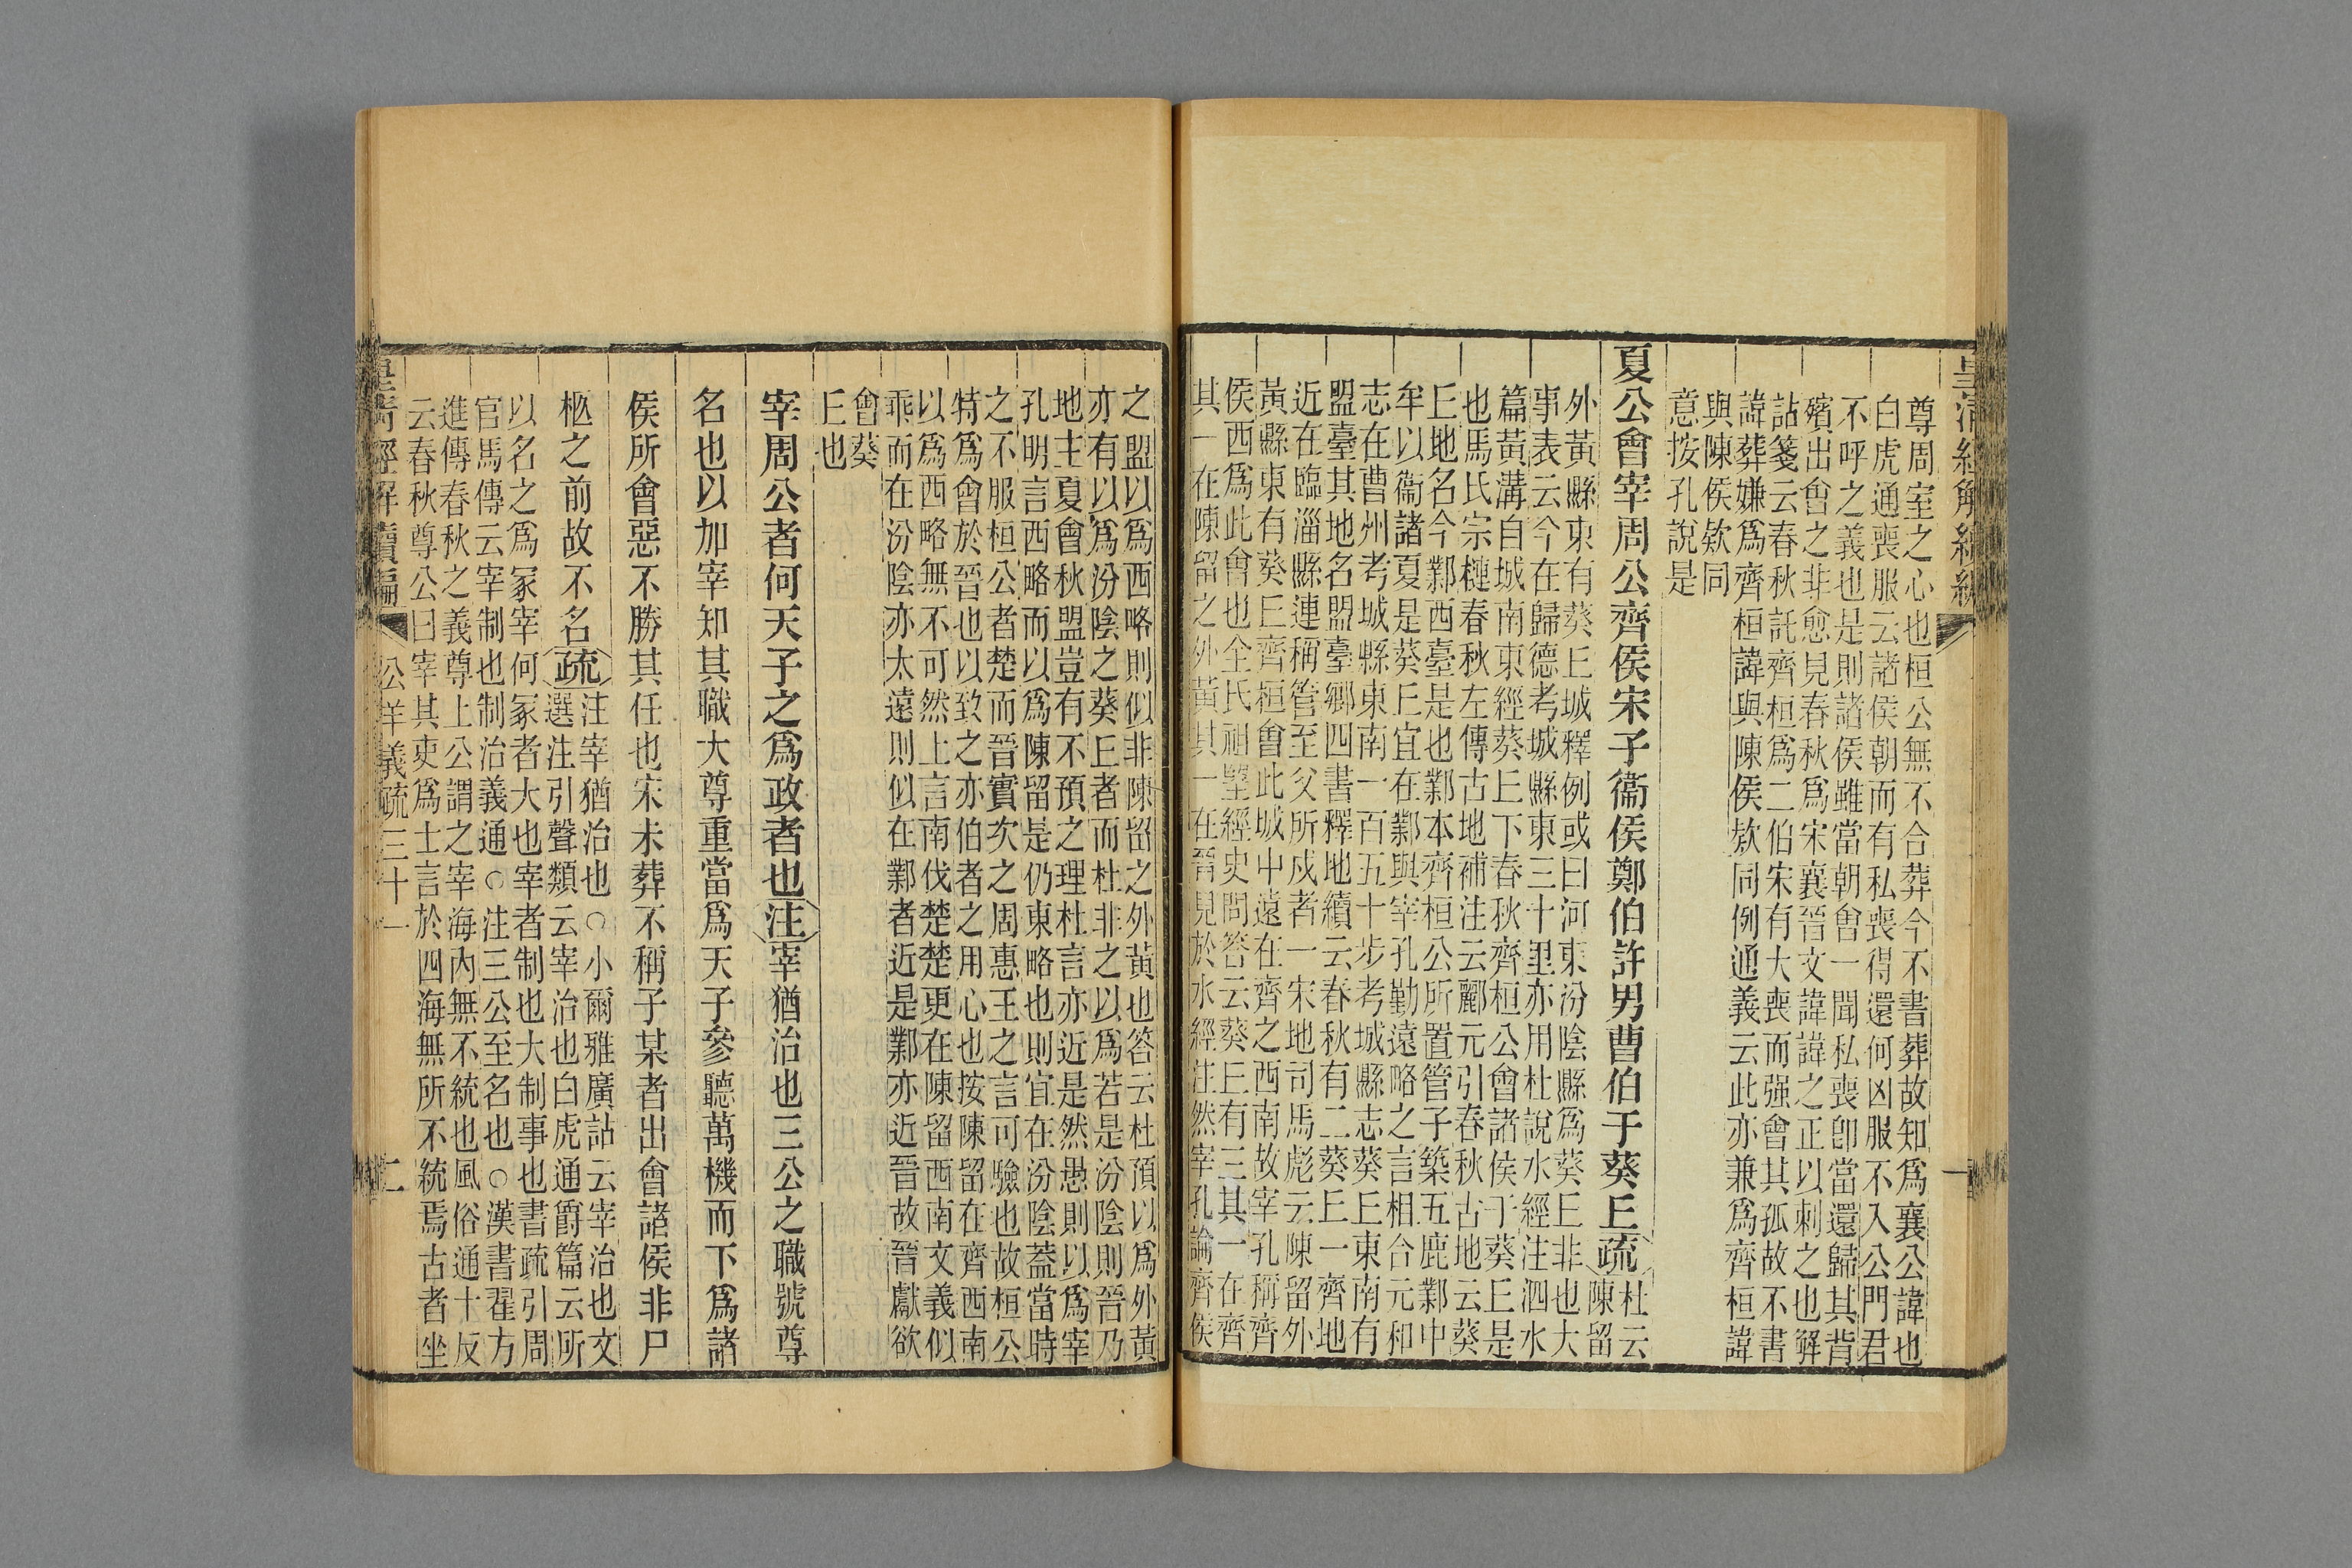 尊周室之心也桓公無不合葬今不書葬故知爲襄公諱也
白虎通喪服云諸侯朝而有私喪得還何凶服不入公門君
不呼之義也是則諸侯雖當朝會一聞私喪卽當還歸其背
殯出會之非愈見春秋爲宋襄晉文諱諱之正以刺之也解
詁箋云春秋託齊桓爲二伯宋有大喪而强會其孤故不書
諱葬嫌爲齊桓諱與陳侯欵同例通義云此亦兼爲齊桓諱
與陳侯欵同
意按孔說是
夏公會宰周公齊侯宋子衞侯鄭伯許男曹伯于葵㠪疏杜云
陳留
外黃縣東有葵㠪城釋例或曰河東汾陰縣爲葵㠪非也大
事表云今在歸德考城縣東三十里亦用杜說水經注泗水
篇黃溝自城南東經葵㠪下春秋齊桓公會諸侯于葵㠪是
也馬氏宗槤春秋左傳古地補注云酈元引春秋古地云葵
㠪地名今鄴西臺是也鄴本齊桓公所置管子築五鹿鄴中
牟以衞諸夏是葵㠪宜在鄴與宰孔勤遠略之言相合元和
志在曹州考城縣東南一百五十步考城縣志葵㠪東南有
盟臺其地名盟臺鄉四書釋地續云春秋有二葵㠪一齊地
近在臨淄縣連稱管至父所戍者一宋地司馬彪云陳留外
黃縣東有葵㠪齊桓會此城中遠在齊之西南故宰孔稱齊
侯西爲此會也全氏祖望經史問答云葵㠪有三其一在齊
其一在陳留之外黃其一在晉見於水經注然宰孔論齊侯
之盟以爲西略則似非陳留之外黃也答云杜預以爲外黃
亦有以爲汾陰之葵㠪者而杜非之以爲若是汾陰則晉乃
地主夏會秋盟豈有不預之理杜言亦近是然愚則以爲宰
孔明言西略而以爲陳留是仍東略也則宜在汾陰蓋當時
之不服桓公者楚而晉實次之周惠王之言可驗也故桓公
特爲會於晉也以致之亦伯者之用心也按陳留在齊西南
以爲西略無不可然上言南伐楚楚更在陳留西南文義似
乖而在汾陰亦太遠則似在鄴者近是鄴亦近晉故晉獻欲
會葵
㠪也
宰周公者何天子之爲政者也注宰猶治也三公之職號尊
名也以加宰知其職大尊重當爲天子參聽萬機而下爲諸
侯所會惡不勝其任也宋未葬不稱子某者出會諸侯非尸
柩之前故不名疏注宰猶治也○小爾雅廣詁云宰治也文
選注引聲類云宰治也白虎通爵篇云所
以名之爲冢宰何冢者大也宰者制也大制事也書疏引周
官馬傳云宰制也制治義通○注三公至名也○漢書翟方
進傳春秋之義尊上公謂之宰海內無不統也風俗通十反
云春秋尊公曰宰其吏爲士言於四海無所不統焉古者坐
皇清經解續編 公羊義疏三十一 二